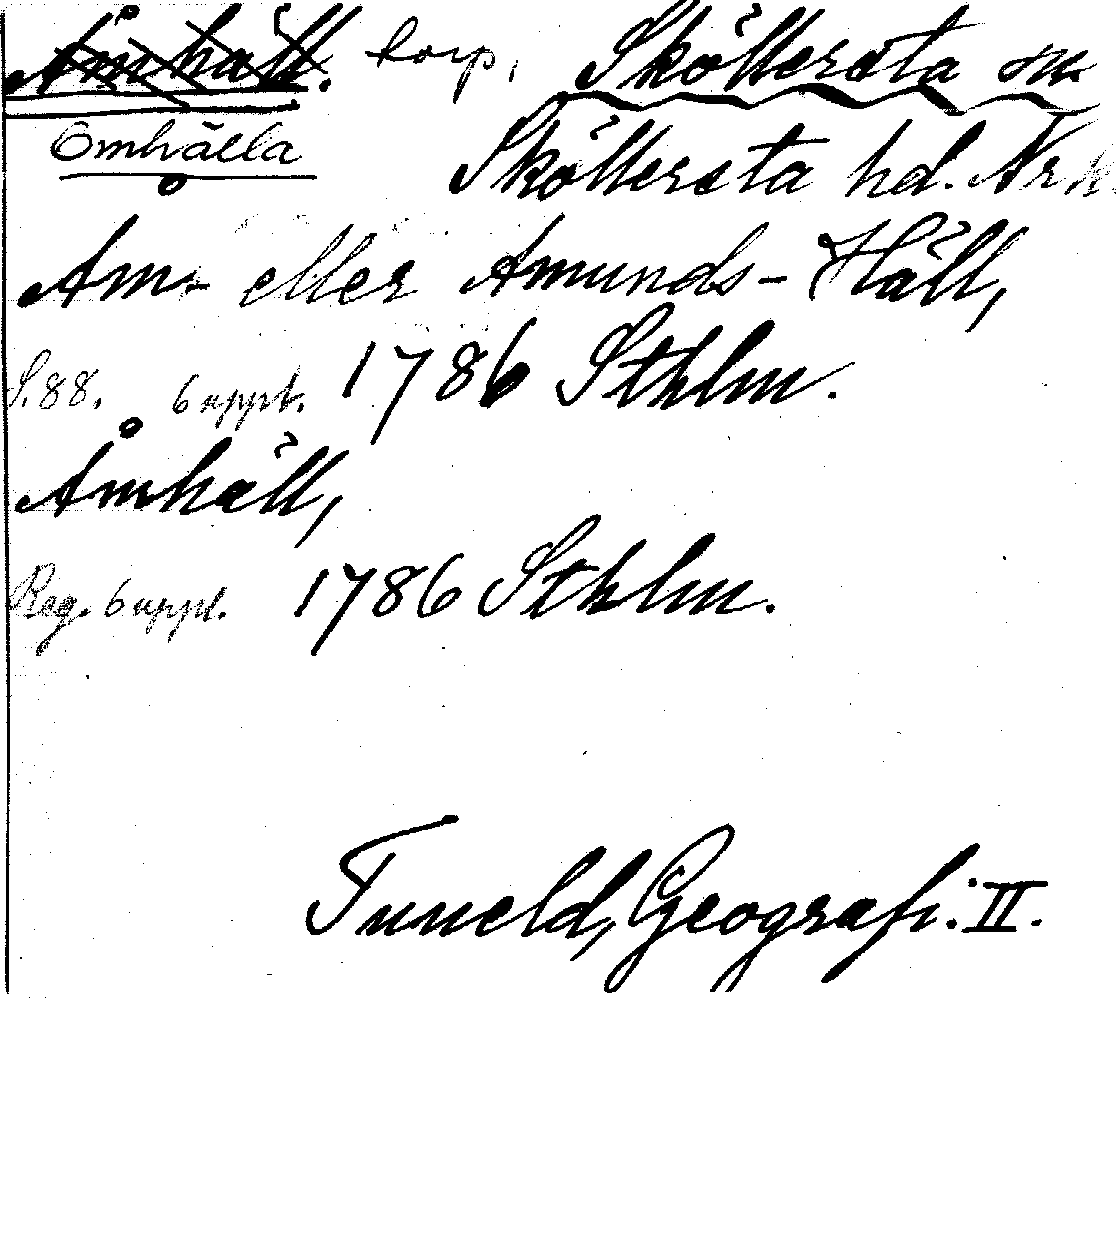 Åmhäll. torp, Sköllersta sn
Ömhälla Sköllersta hd. Nrk.
Åm- eller Åmunds-Häll,
S. 88. 6 uppl. 1786 Sthlm.
Åmhäll,
Reg. 6 uppl. 1786 Sthlm.
Tuneld, Geografi. II.